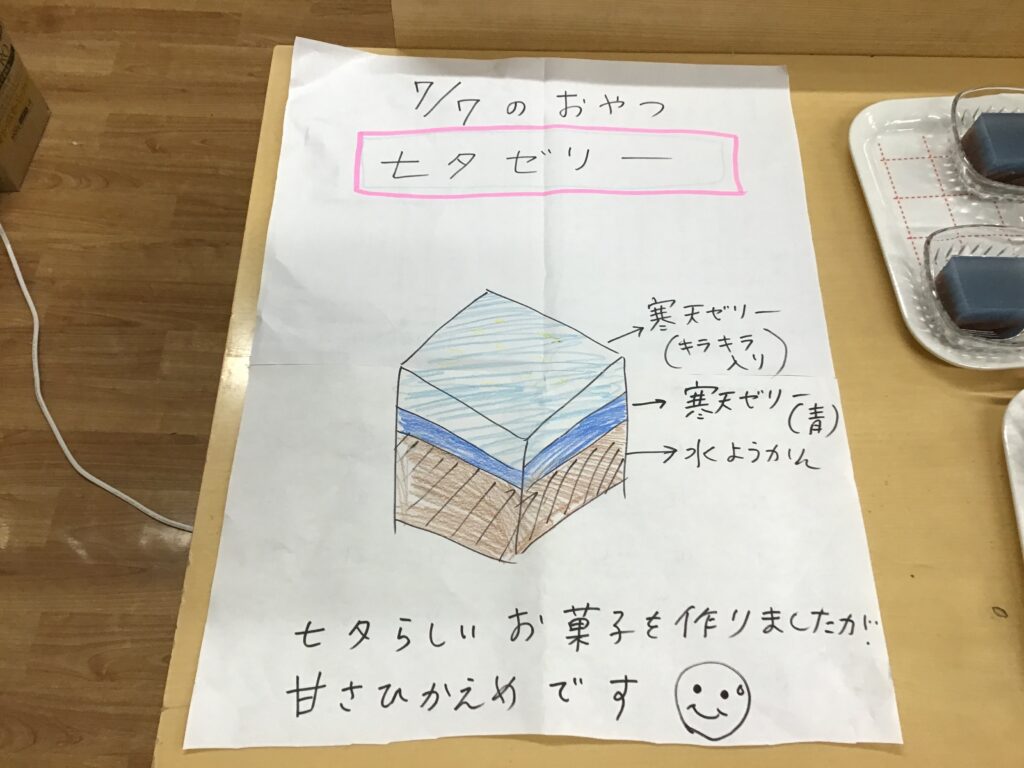 7/7のおやつ
七夕ゼリー
寒天ゼリー
(キラキラ
入り)
寒天ゼリー
(青)
水ようかん
七夕らしいお菓子を作りましたが
甘さひかえめです